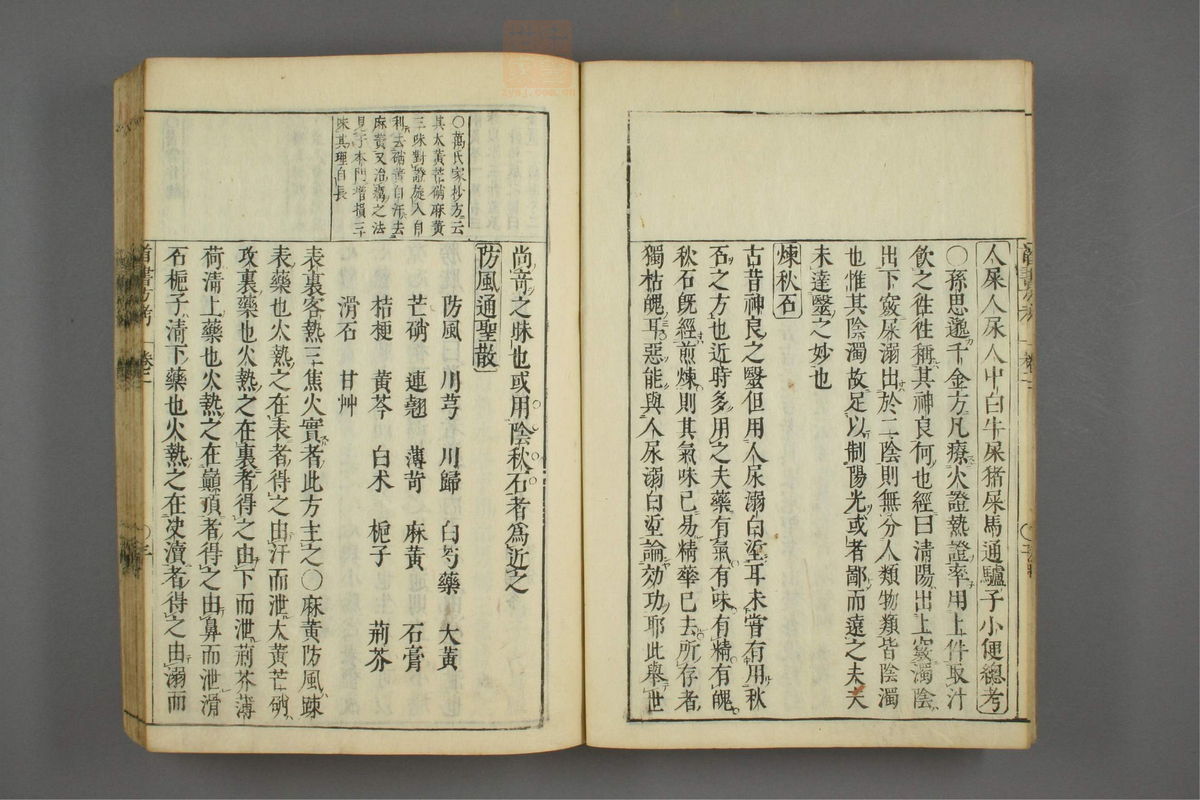 人屎人尿人中白牛屎猪屎馬通驢子小便總考
○孫思邈千金方凡療火證熱證率用上件取汁
飲之徃徃稱其神良何也經曰清陽出上竅濁陰
出下竅屎溺出於二陰則無分人類物類皆陰濁
也惟其陰濁故足以制陽光或者鄙而遠之夫夫
未達毉之妙也
煉秋石
古昔神良之毉但用人尿溺白垽耳未嘗有用秋
石之方也近時多用之夫藥有氣有味有精有魄
秋石旣經煎煉則其氣味已易精華已去所存者
獨枯魄耳惡能與人尿溺白垽論効功耶此舉世
尚竒之昧也或用陰秋石者爲近之
防風通聖散
防風 川芎 川歸 白芍藥 大黃
芒硝 連翹 薄荷 麻黃 石膏
桔梗 黃芩 白术 梔子 荊芥
滑石 甘艸
表裏客熱三焦火實者此方主之○麻黃防風疎
表藥也火熱之在表者得之由汗而泄大黃芒硝
攻裏藥也火熱之在裏者得之由下而泄荊芥薄
荷清上藥也火熱之在巔頂者得之由鼻而泄滑
石梔子清下藥也火熱之在決瀆者得之由溺而
○萬氏家抄方云
其大黃芒硝麻黃
三味對證旋入自
利去硝黃自汗去
麻黃又治癘之法
見于本門增損三
味其理自長